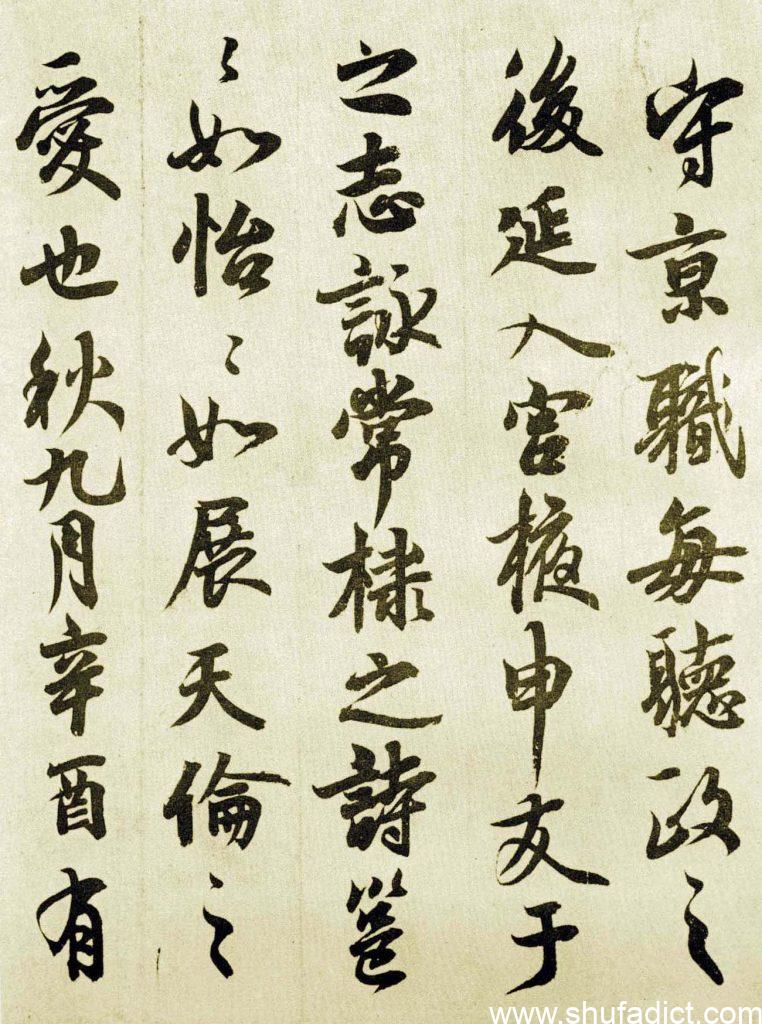 守京職每聽政之
後延入宮掖申友于
之志詠常棣之詩邕
〻如怡〻如展天倫之
愛也秋九月辛酉有
www.shufadict.com